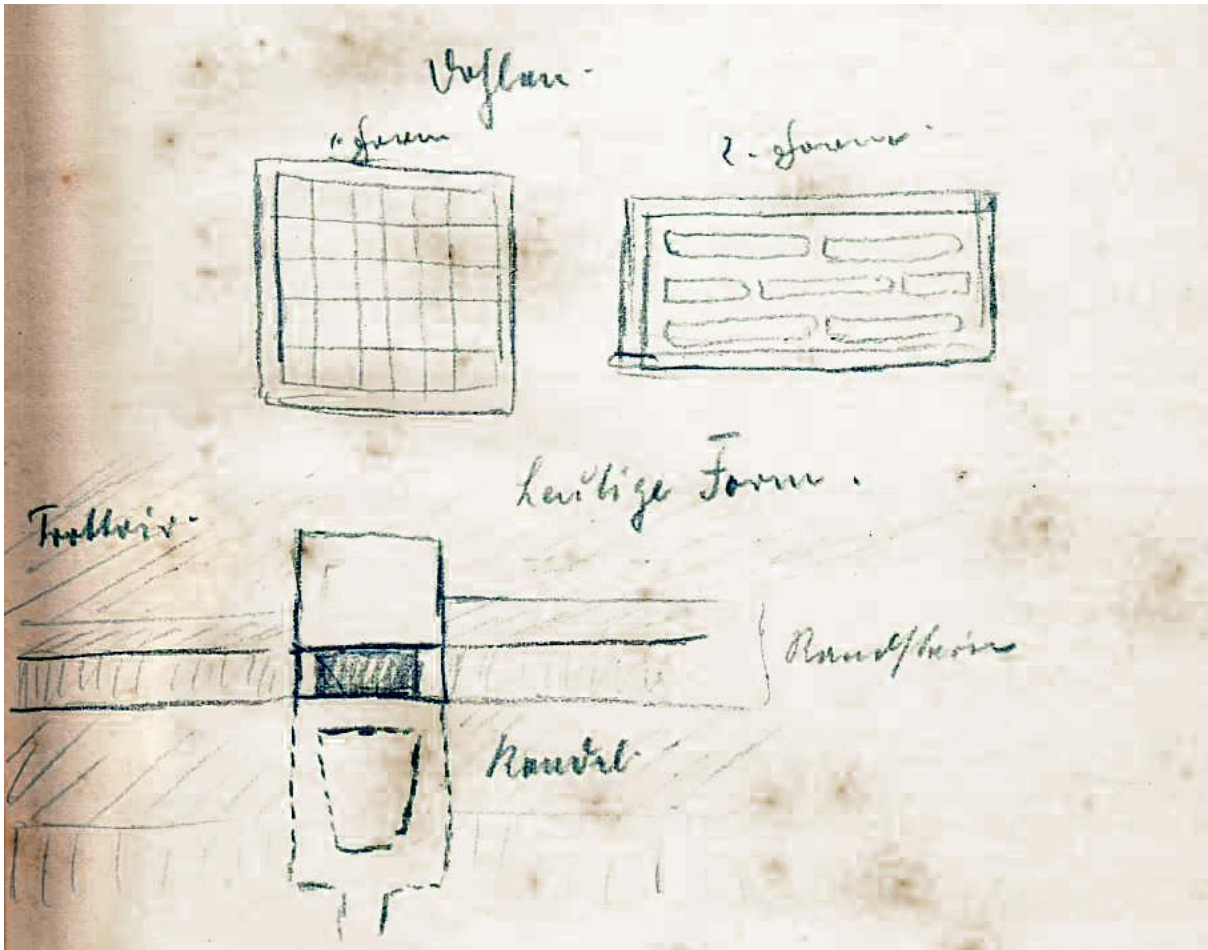 Dohlen.
1. Form
2. Form.
heutige Form.
Trottoir.
Randstein
Kandel